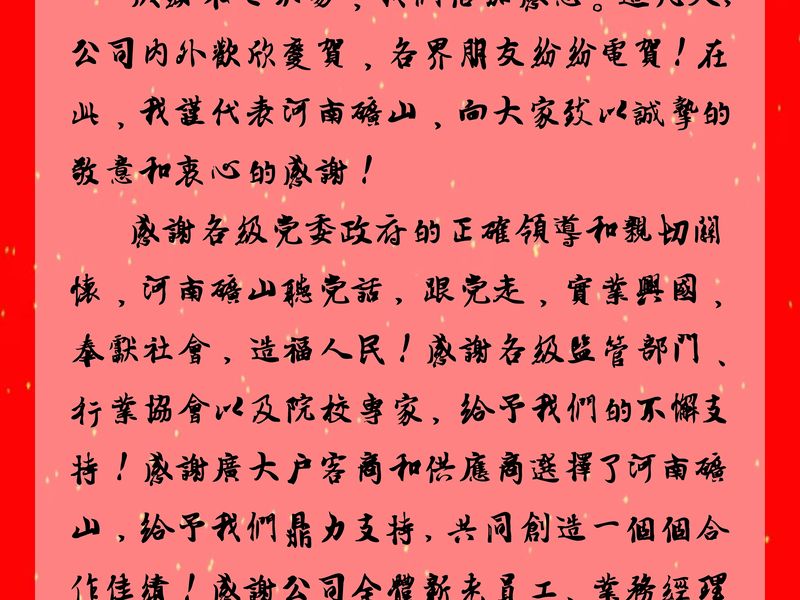 公司内外歡欣慶賀，各界朋友紛紛電賀！在
此，我謹代表河南礦山，向大家致以誠摯的
敬意和衷心的感謝！
感謝各級党委政府的正確領導和親切關
懷，河南礦山聽党話，跟党走，實業興國，
奉獻社會，造福人民！感謝各級监管部门、
行業協會以及院校專家，給予我們的不懈支
持！感謝廣大户客商和供應商選擇了河南礦
山，給予我們鼎力支持，共同創造一個個合
作佳績！感謝公司全體新老員工、業務經理